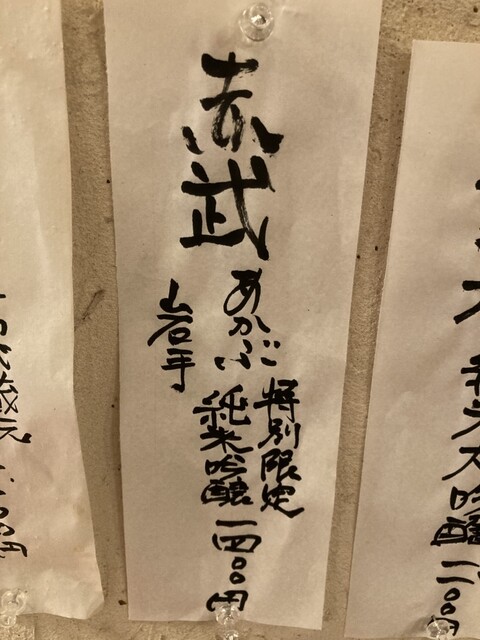 大吟醸
赤武
あかぶ
岩手
特別限定
純米吟醸 一四〇〇円
蔵元